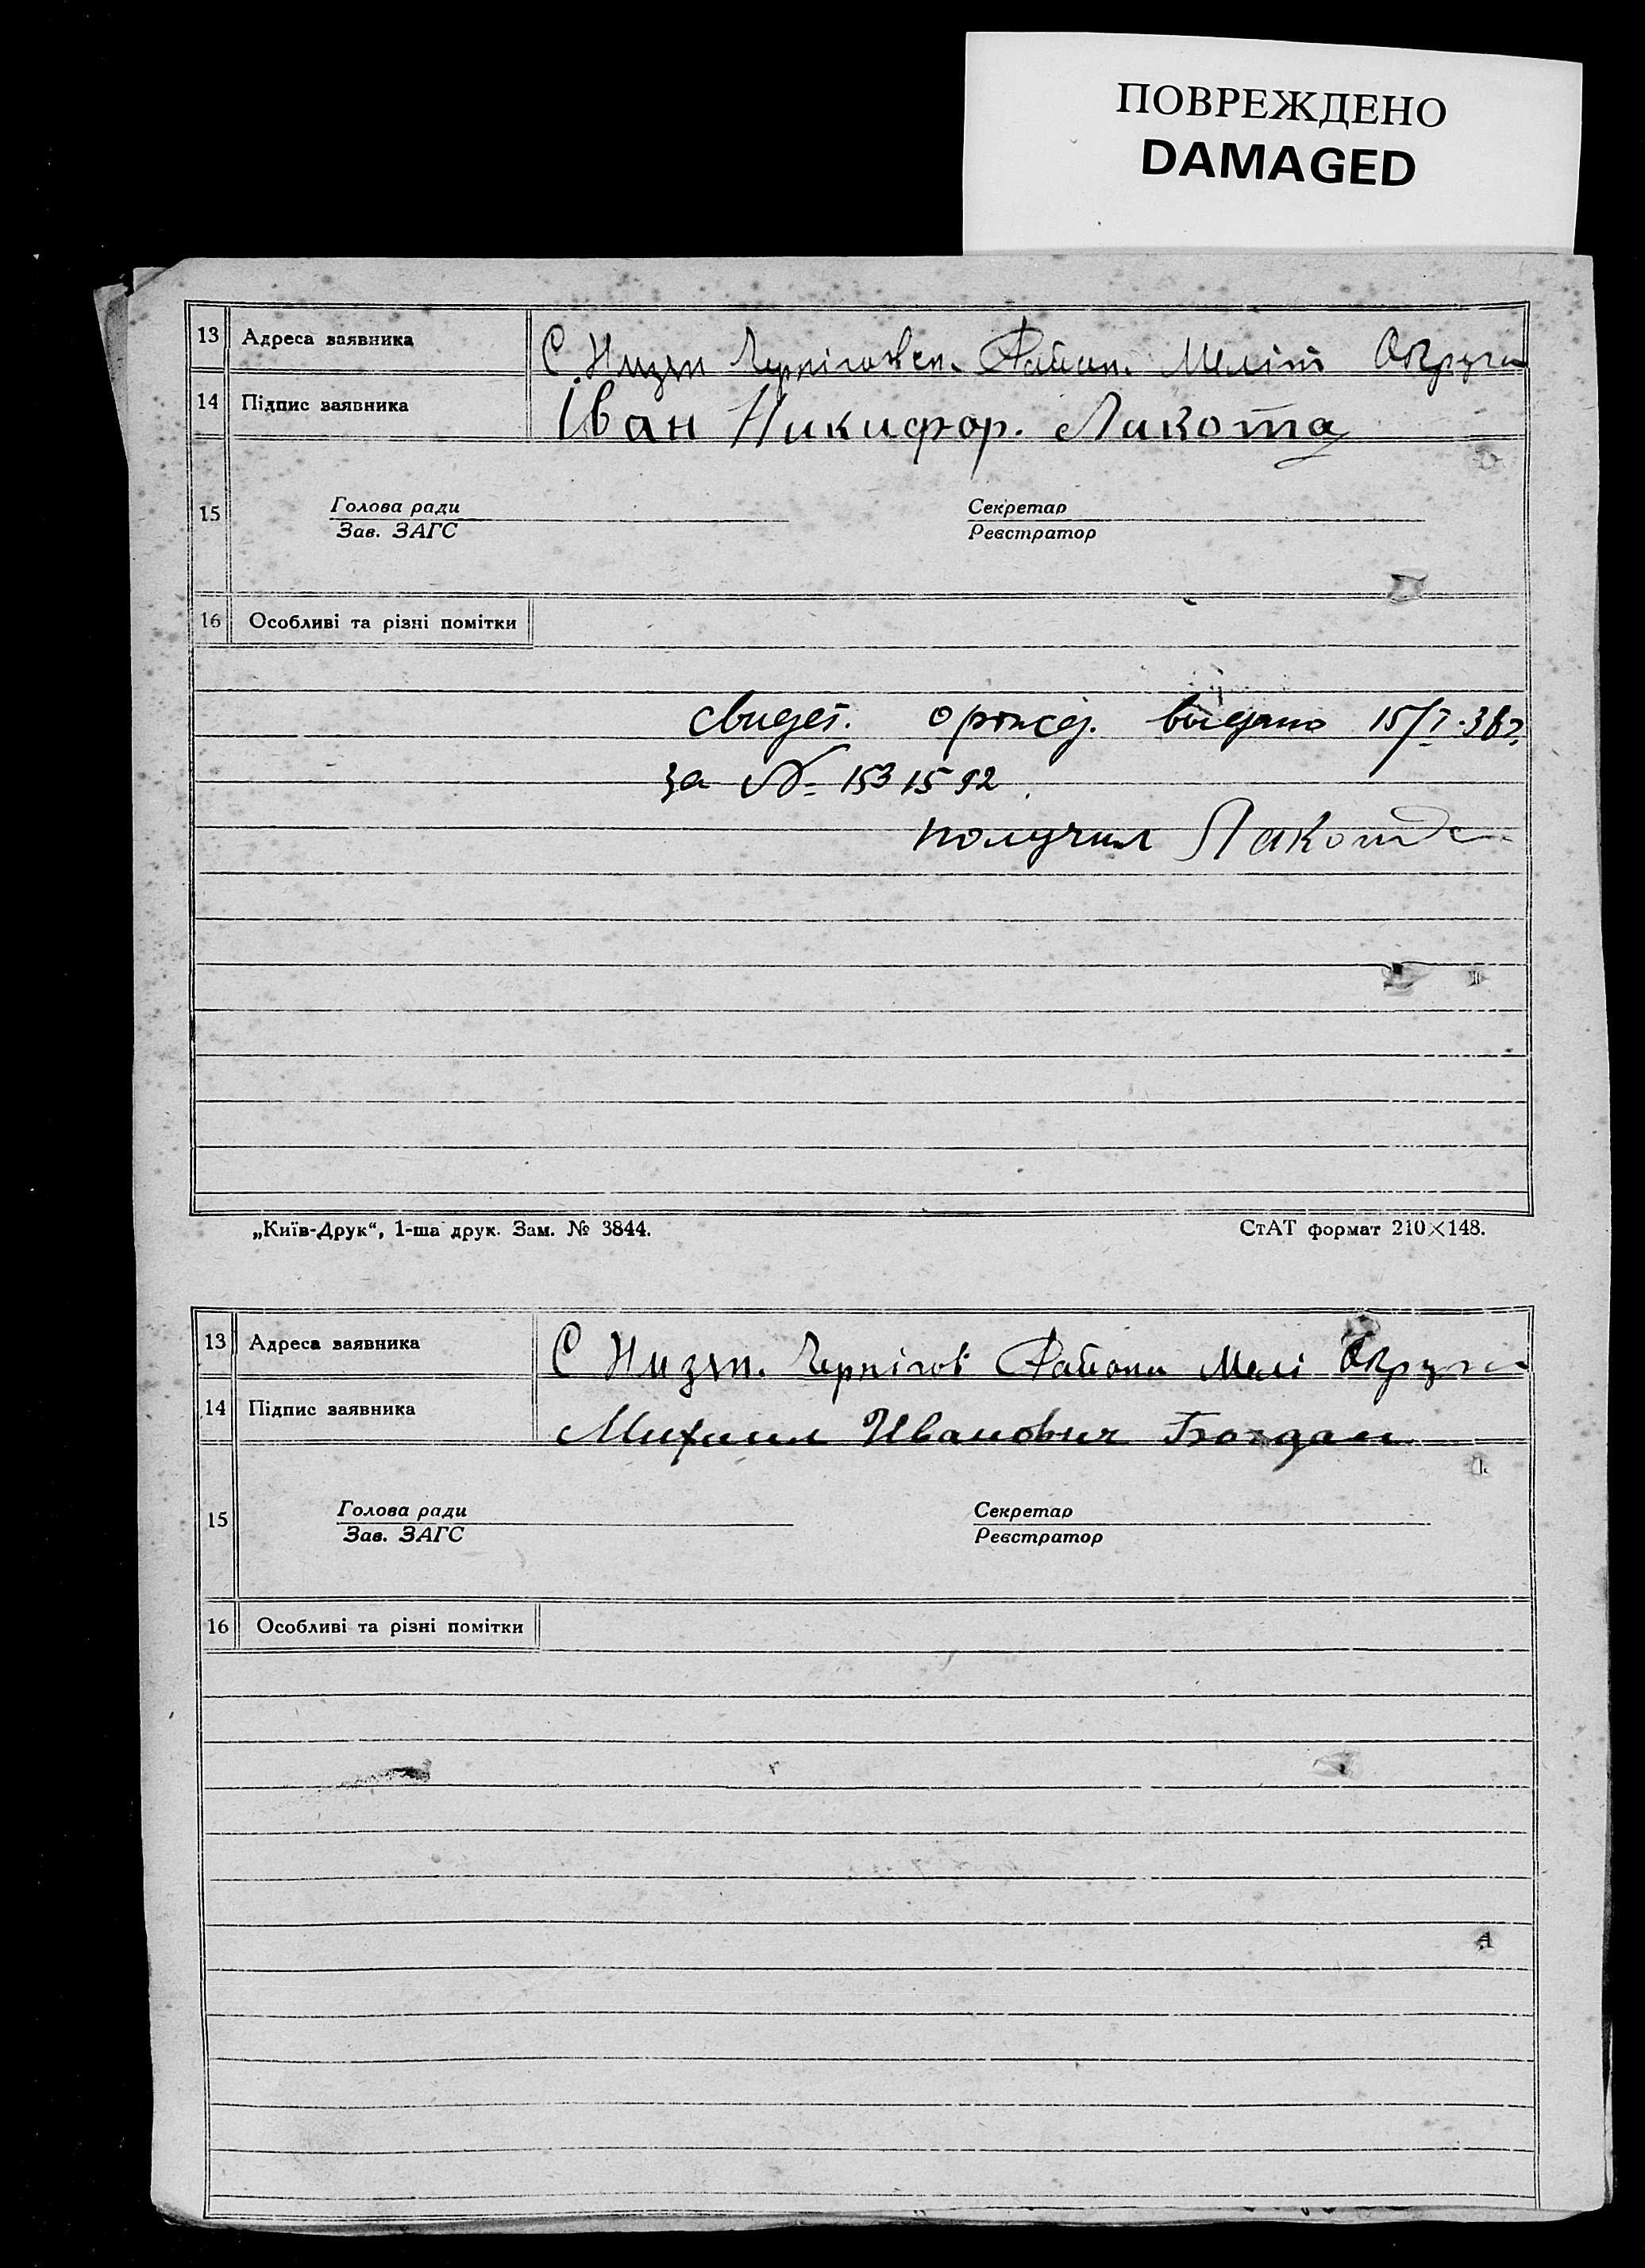 ПОВРЕЖДЕНО
DAMAGED
13 Адреса заявника С. Низян Черніговск. Район. Меліт Округи
14 Підпис заявника Іван Никифор. Лакота
15 Голова ради Секретар
Зав. ЗАГС Реєстратор
16 Особливі та різні помітки
свидет. о рожд. выдано 15/I-38г.
за № 1531592
получил Лакота
„Київ-Друк“, 1-ша друк. Зам. № 3844. СтАТ формат 210×148.
13 Адреса заявника С Низян. Чернігов Района Мелі Округи
14 Підпис заявника Михаил Иванович Богдан
15 Голова ради Секретар
Зав. ЗАГС Реєстратор
16 Особливі та різні помітки